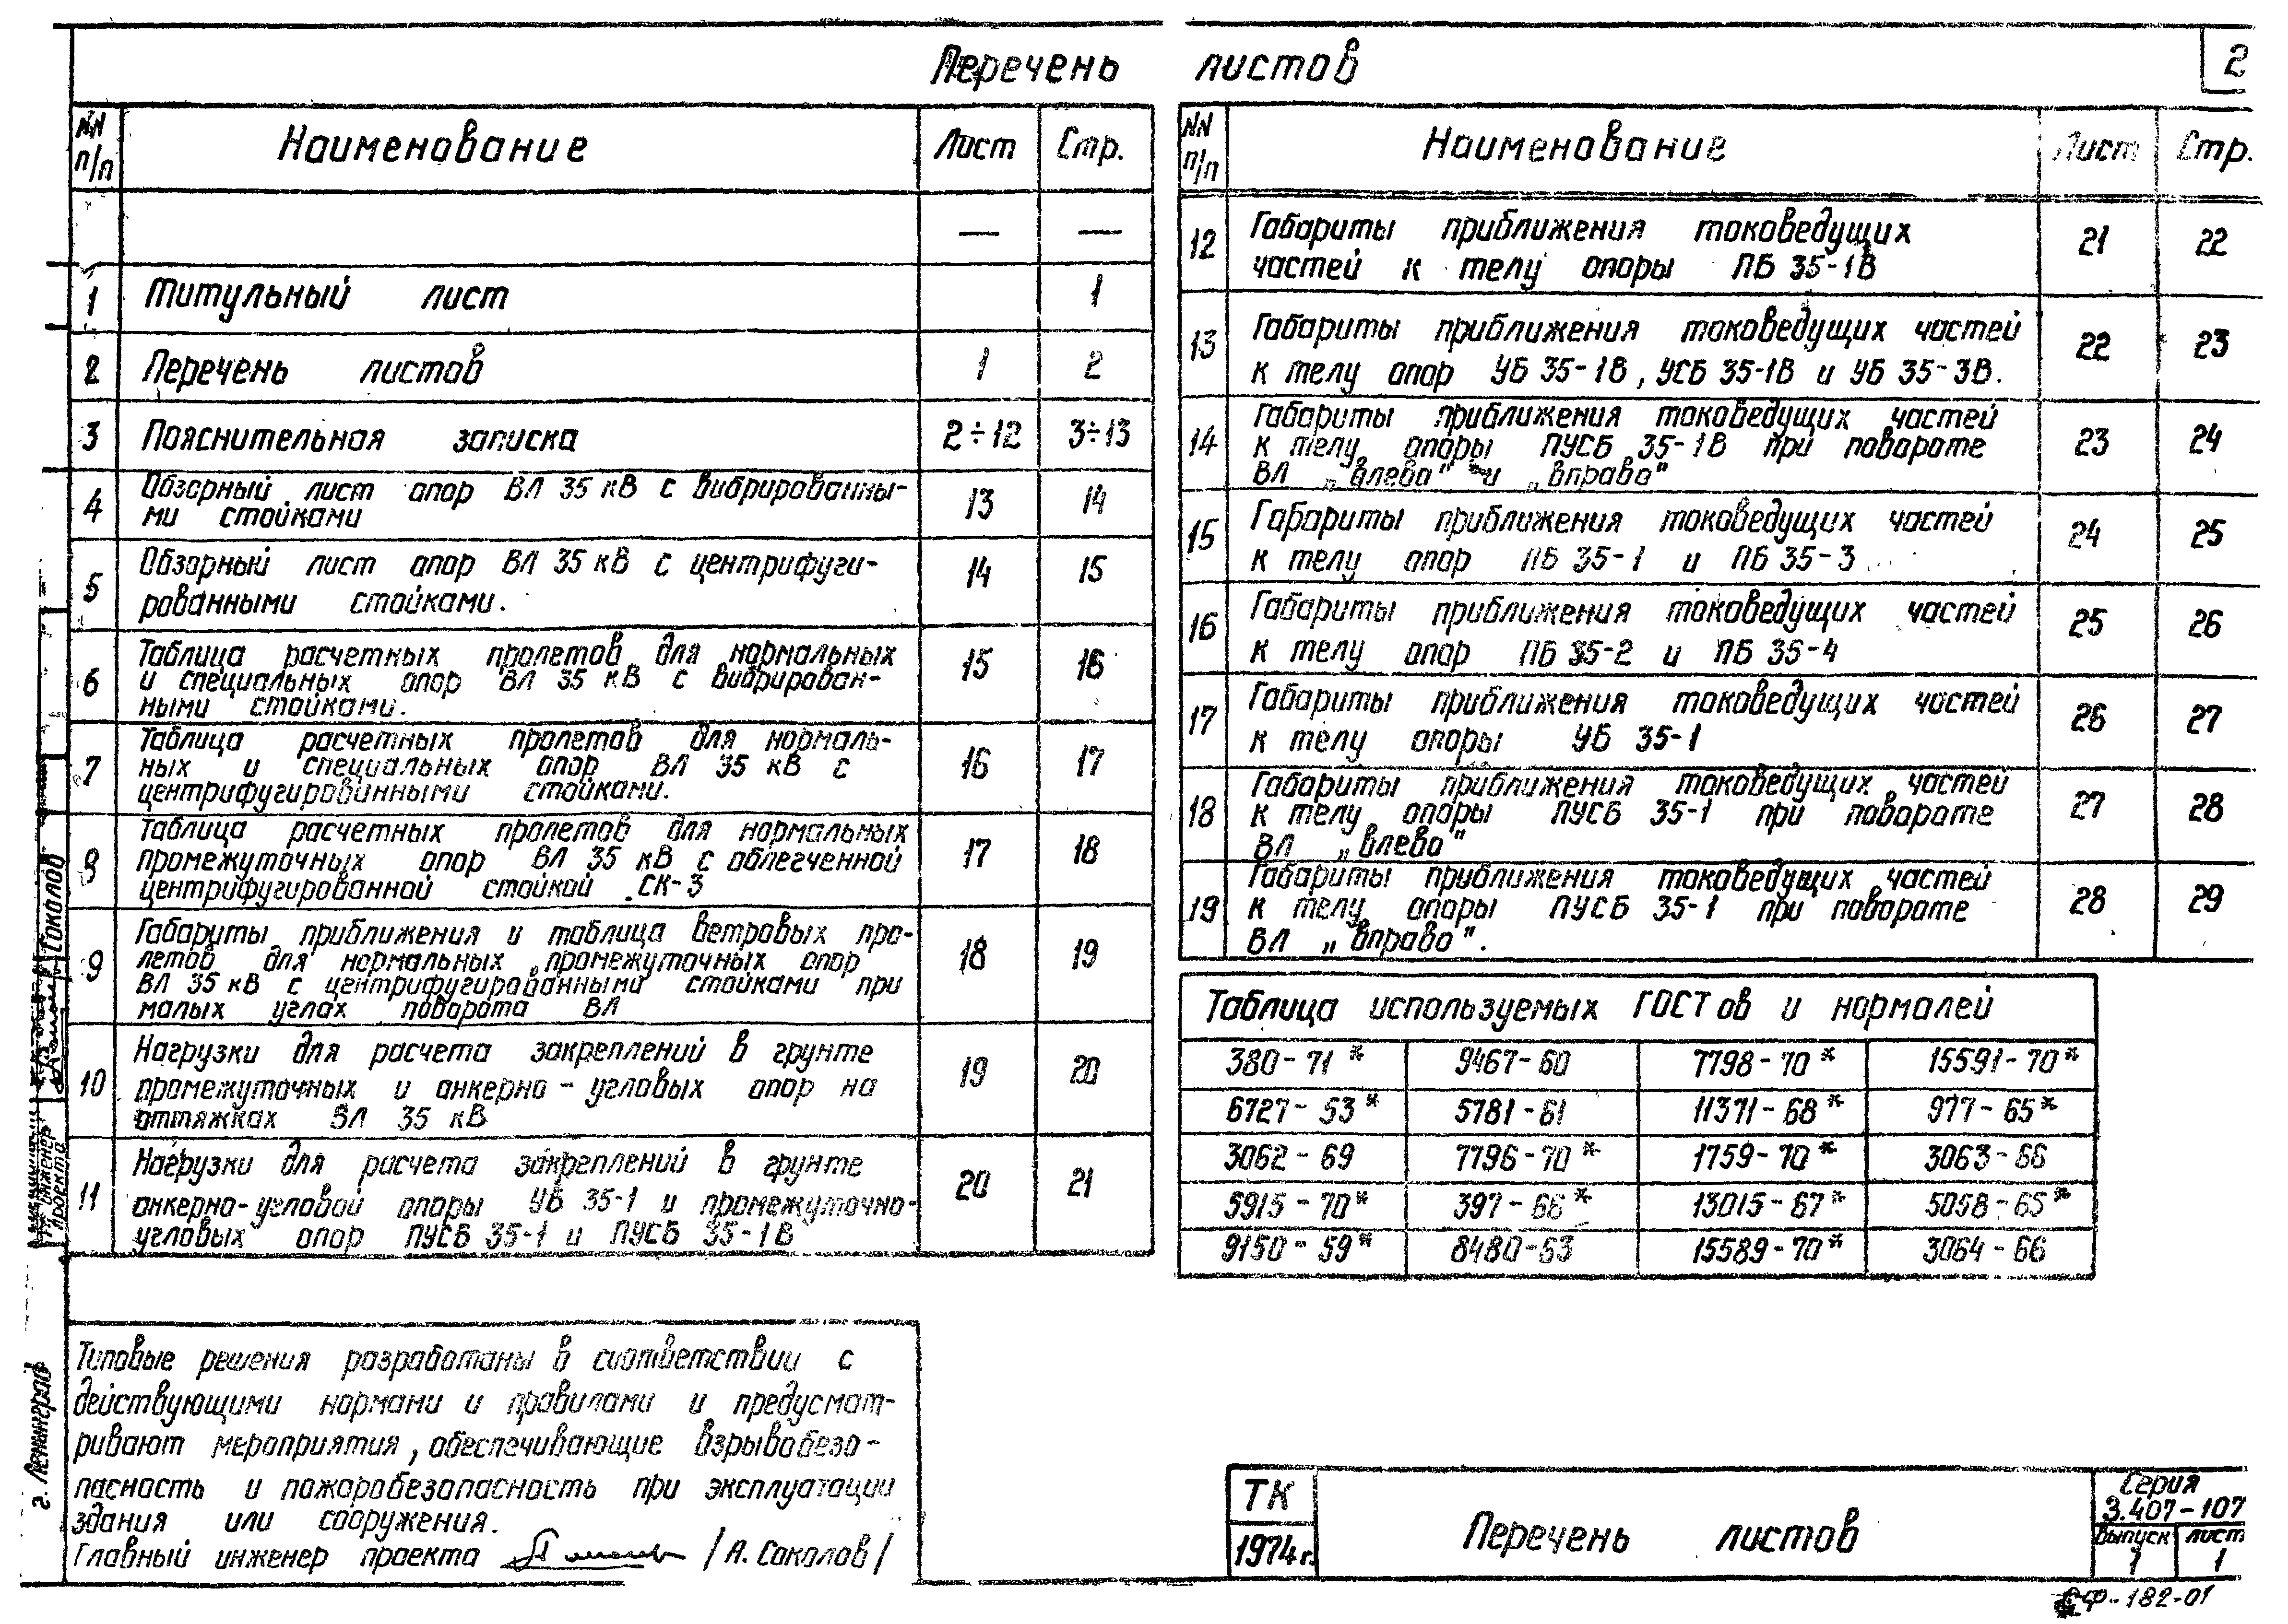 Перечень листов
2
NN п/п Наименование Лист Стр.
— —
1 Титульный лист 1
2 Перечень листов 1 2
3 Пояснительная записка 2÷12 3÷13
4 Обзорный лист опор ВЛ 35 кВ с вибрированны-
ми стойками 13 14
5 Обзорный лист опор ВЛ 35 кВ с центрифуги-
рованными стойками. 14 15
6 Таблица расчетных пролетов для нормальных
и специальных опор ВЛ 35 кВ с вибрирован-
ными стойками. 15 16
7 Таблица расчетных пролетов для нормаль-
ных и специальных опор ВЛ 35 кВ с
центрифугированными стойками. 16 17
8 Таблица расчетных пролетов для нормальных
промежуточных опор ВЛ 35 кВ с облегченной
центрифугированной стойкой СК-3 17 18
9 Габариты приближения и таблица ветровых про-
летов для нормальных промежуточных опор
ВЛ 35 кВ с центрифугированными стойками при
малых углах поворота ВЛ 18 19
10 Нагрузки для расчета закреплений в грунте
промежуточных и анкерно-угловых опор на
оттяжках ВЛ 35 кВ 19 20
11 Нагрузки для расчета закреплений в грунте
анкерно-угловой опоры УБ 35-1 и промежуточно-
угловых опор ПУСБ 35-1 и ПУСБ 35-1В 20 21
NN п/п Наименование Лист Стр.
12 Габариты приближения токоведущих
частей к телу опоры ПБ 35-1В 21 22
13 Габариты приближения токоведущих частей
к телу опор УБ 35-1В, УСБ 35-1В и УБ 35-3В. 22 23
14 Габариты приближения токоведущих частей
к телу опоры ПУСБ 35-1В при повороте
ВЛ „влево" и „вправо" 23 24
15 Габариты приближения токоведущих частей
к телу опор ПБ 35-1 и ПБ 35-3 24 25
16 Габариты приближения токоведущих частей
к телу опор ПБ 35-2 и ПБ 35-4 25 26
17 Габариты приближения токоведущих частей
к телу опоры УБ 35-1 26 27
18 Габариты приближения токоведущих частей
к телу опоры ПУСБ 35-1 при повороте
ВЛ „влево" 27 28
19 Габариты приближения токоведущих частей
к телу опоры ПУСБ 35-1 при повороте
ВЛ „вправо". 28 29
Таблица используемых ГОСТов и нормалей
380-71* 9467-60 7798-70* 15591-70*
6727-53* 5781-61 11371-68* 977-65*
3062-69 7796-70* 1759-70* 3063-66
5915-70* 397-66* 13015-67* 5058-65*
9150-59* 8480-63 15589-70* 3064-66
Типовые решения разработаны в соответствии с
действующими нормами и правилами и предусмат-
ривают мероприятия, обеспечивающие взрывобезо-
пасность и пожаробезопасность при эксплуатации
здания или сооружения.
Главный инженер проекта /А. Соколов/
ТК
1974 г.
Перечень листов
Серия
3.407-107
Выпуск лист
1 1
СФ-182-01
г. Ленинград
проекта
Соколов